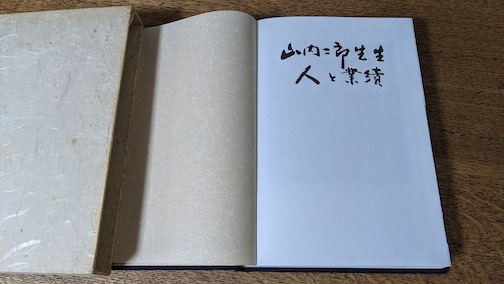 山内二郎先生
人と業績